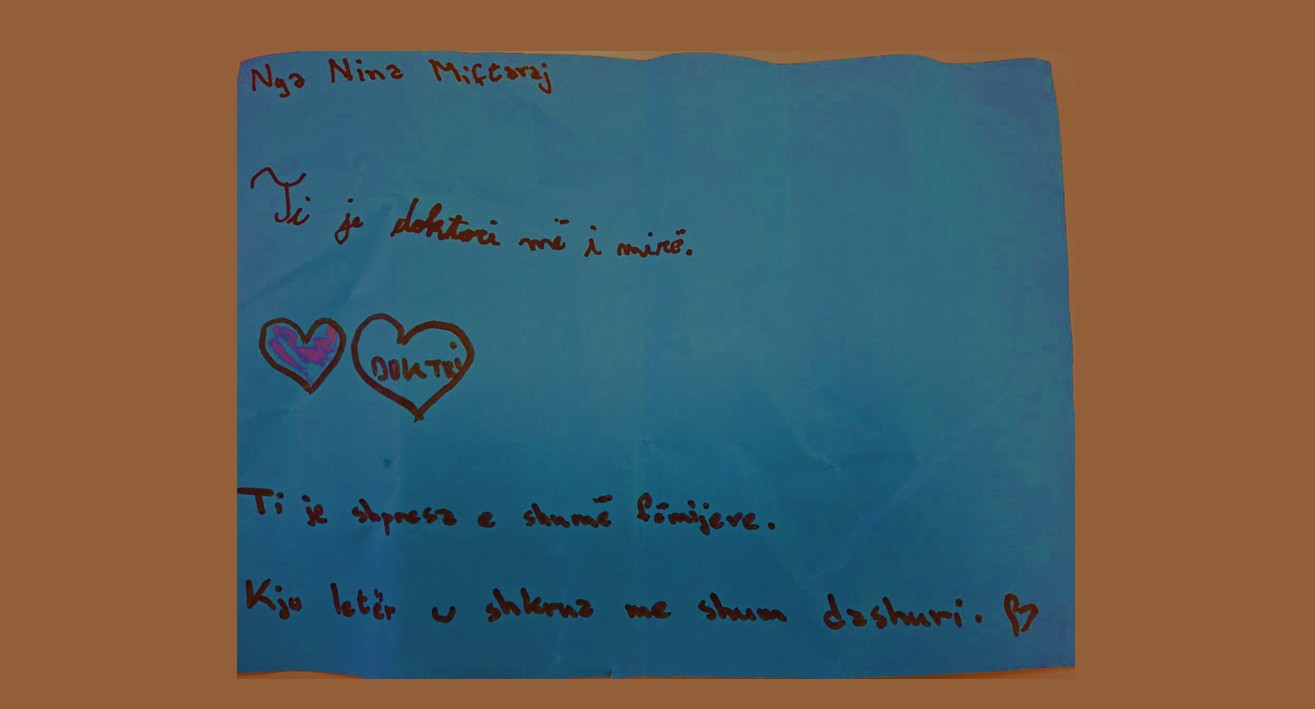 Nga Nina Miftaraj
Ti je doktori më i mirë.
DOKTRI
Ti je shpresa e shumë fëmijeve.
Kju letër u shkrua me shum dashuri.